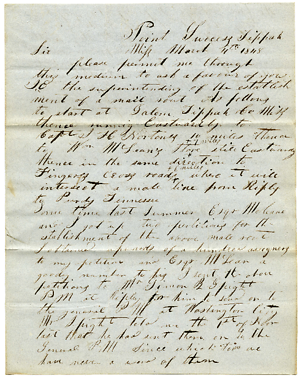 Point Success Tippah
Sir Miss March 4th 1848
please permit me through
this medium to ask a favour of you
the superintending of the establish
ment of a mail rout As follows
to start at Salem Tippah Co Miss
thence Eastwardly to
Capt miles thence
to Wm still Eastwardly
thence in the same direction to
roads where it will
intersect a male line from Ripley
to Purdy Tennessee
Some time last Summer Esqr McLean
and I got up two petitions for the
establishment of the above male rout
to my petition and Esqr McLean a
goodly number to his I sent the above
petitions to Mr Simon R Spight
P.M at Ripley for him to send on to
the General P.M at Washington City
Mr Spight told me the 1st of
last that he has sent them on to the
General P.M Since which time we
have never a word of them